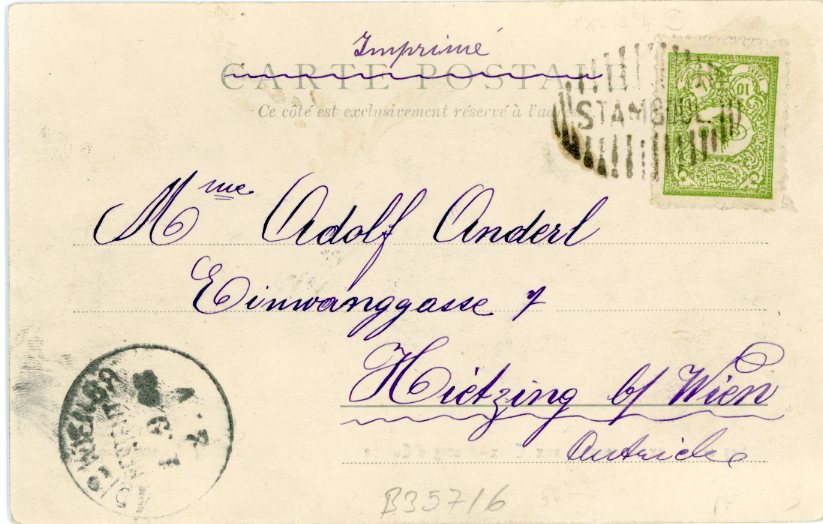 Imprimé
CARTE POSTALE
Ce côté est exclusivement réservé à
STAMBOUL
10
Mme Adolf Anderl
Einwanggasse 7
Hietzing b/ Wien
Autriche
B35716